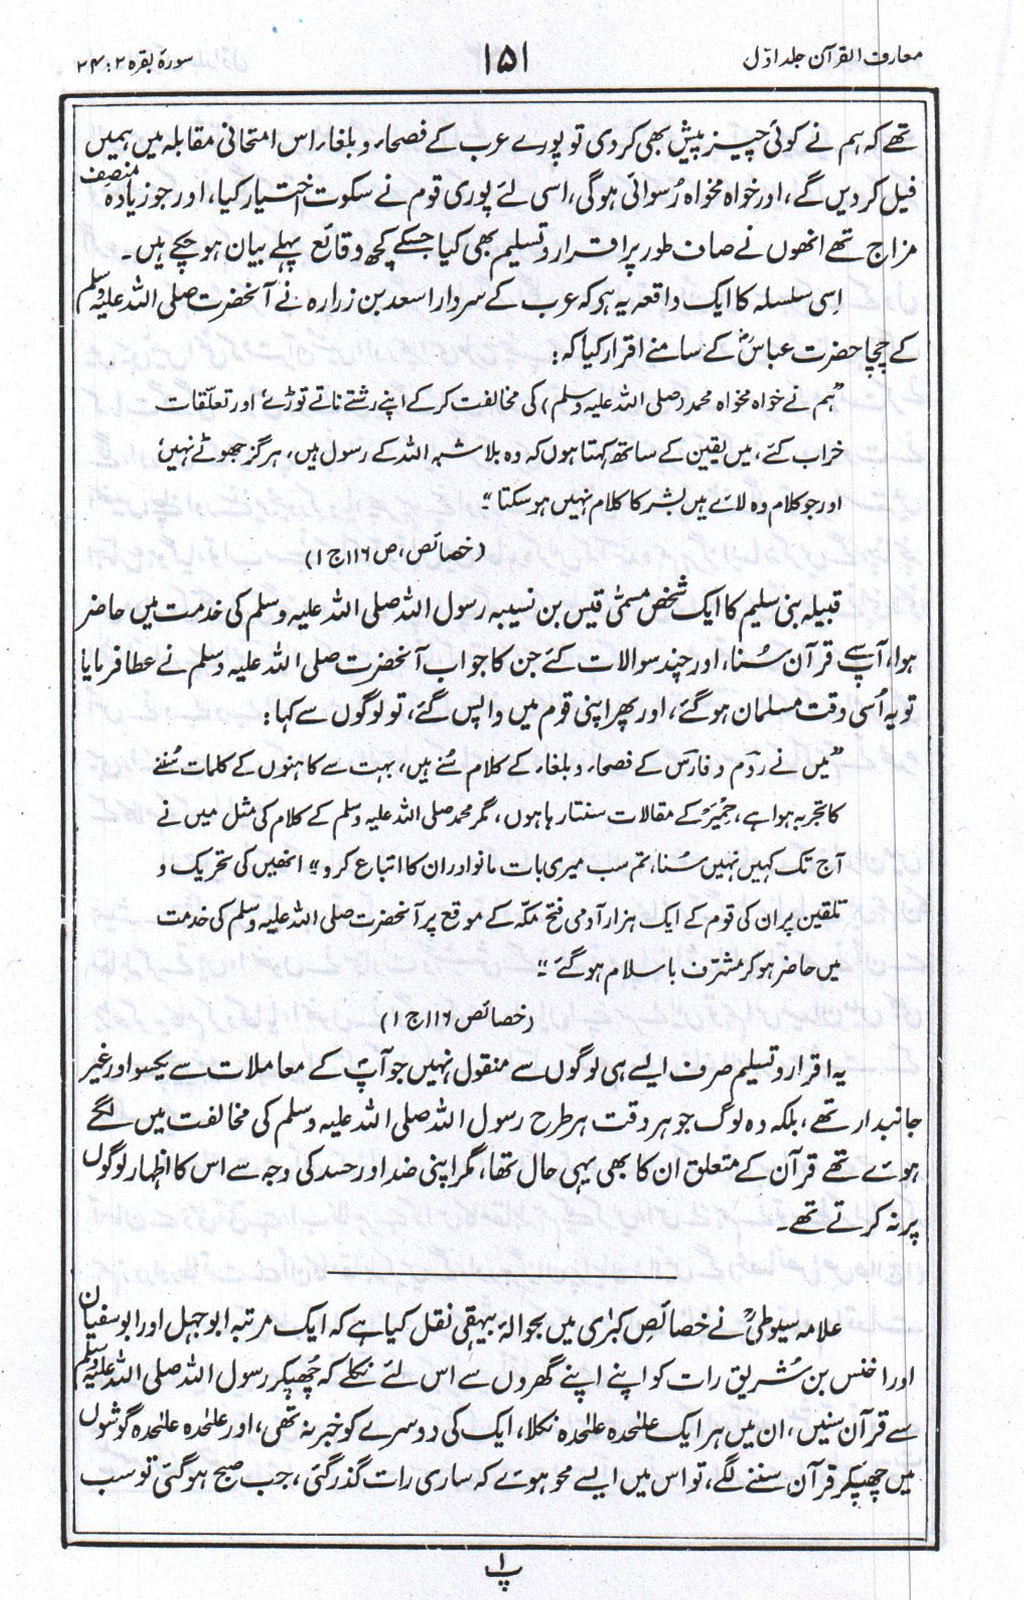 معارف القرآن جلد اوّل
۱۵۱
سورۂ بقرہ ۲: ۲۴
تھے کہ ہم نے کوئی چیز پیش بھی کر دی تو پورے عرب کے فصحاء و بلغاء اس امتحانی مقابلہ میں ہمیں
فیل کر دیں گے، اور خواہ مخواہ رُسوائی ہوگی، اسی لئے پوری قوم نے سکوت اختیار کیا، اور جو زیادہ منصف
مزاج تھے انھوں نے صاف طور پر اقرار و تسلیم بھی کیا جسکے کچھ وقائع پہلے بیان ہو چکے ہیں۔
اِسی سلسلہ کا ایک واقعہ یہ ہر کہ عرب کے سردار اسعد بن زرارہ نے آنحضرت صلی اللہ علیہ وسلم
کے چچا حضرت عباسؓ کے سامنے اقرار کیا کہ:
”ہم نے خواہ مخواہ محمد (صلی اللہ علیہ وسلم) کی مخالفت کر کے اپنے رشتے ناتے توڑے اور تعلّقات
خراب کئے، میں یقین کے ساتھ کہتا ہوں کہ وہ بلا شبہ اللہ کے رسول ہیں، ہرگز جھوٹے نہیں،
اور جو کلام وہ لائے ہیں بشر کا کلام نہیں ہو سکتا“۔
(خصائص، ص ۱۱۶ ج ۱)
قبیلہ بنی سلیم کا ایک شخص مسمّٰی قیس بن نسیبہ رسول اللہ صلی اللہ علیہ وسلم کی خدمت میں حاضر
ہوا، آپؐ سے قرآن سُنا، اور چند سوالات کئے جن کا جواب آنحضرت صلی اللہ علیہ وسلم نے عطا فرمایا
تو یہ اُسی وقت مسلمان ہو گئے، اور پھر اپنی قوم میں واپس گئے، تو لوگوں سے کہا:
”میں نے روم و فارس کے فصحاء و بلغاء کے کلام سُنے ہیں، بہت سے کاہنوں کے کلمات سُننے
کا تجربہ ہوا ہے، حِمْیَر کے مقالات سنتا رہا ہوں، مگر محمد صلی اللہ علیہ وسلم کے کلام کی مثل میں نے
آج تک کہیں نہیں سُنا، تم سب میری بات مانو اور ان کا اتباع کرو“ انھیں کی تحریک و
تلقین پر ان کی قوم کے ایک ہزار آدمی فتح مکّہ کے موقع پر آنحضرت صلی اللہ علیہ وسلم کی خدمت
میں حاضر ہو کر مشرّف باسلام ہو گئے“۔
(خصائص ۱۱۶ ج ۱)
یہ اقرار و تسلیم صرف ایسے ہی لوگوں سے منقول نہیں جو آپؐ کے معاملات سے یکسو اور غیر
جانبدار تھے، بلکہ وہ لوگ جو ہر وقت ہر طرح رسول اللہ صلی اللہ علیہ وسلم کی مخالفت میں لگے
ہوئے تھے قرآن کے متعلق ان کا بھی یہی حال تھا، مگر اپنی ضد اور حسد کی وجہ سے اس کا اظہار لوگوں
پر نہ کرتے تھے۔
علامہ سیوطیؒ نے خصائصِ کبرٰی میں بحوالۂ بیہقی نقل کیا ہے کہ ایک مرتبہ ابو جہل اور ابو سفیان
اور اخنس بن شُریق رات کو اپنے اپنے گھروں سے اس لئے نکلے کہ چُھپکر رسول اللہ صلی اللہ علیہ وسلم
سے قرآن سنیں، ان میں ہر ایک علٰحدہ علٰحدہ نکلا، ایک کی دوسرے کو خبر نہ تھی، اور علٰحدہ علٰحدہ گوشوں
میں چھپکر قرآن سننے لگے، تو اس میں ایسے محو ہوئے کہ ساری رات گذر گئی، جب صبح ہو گئی تو سب
پ ۱